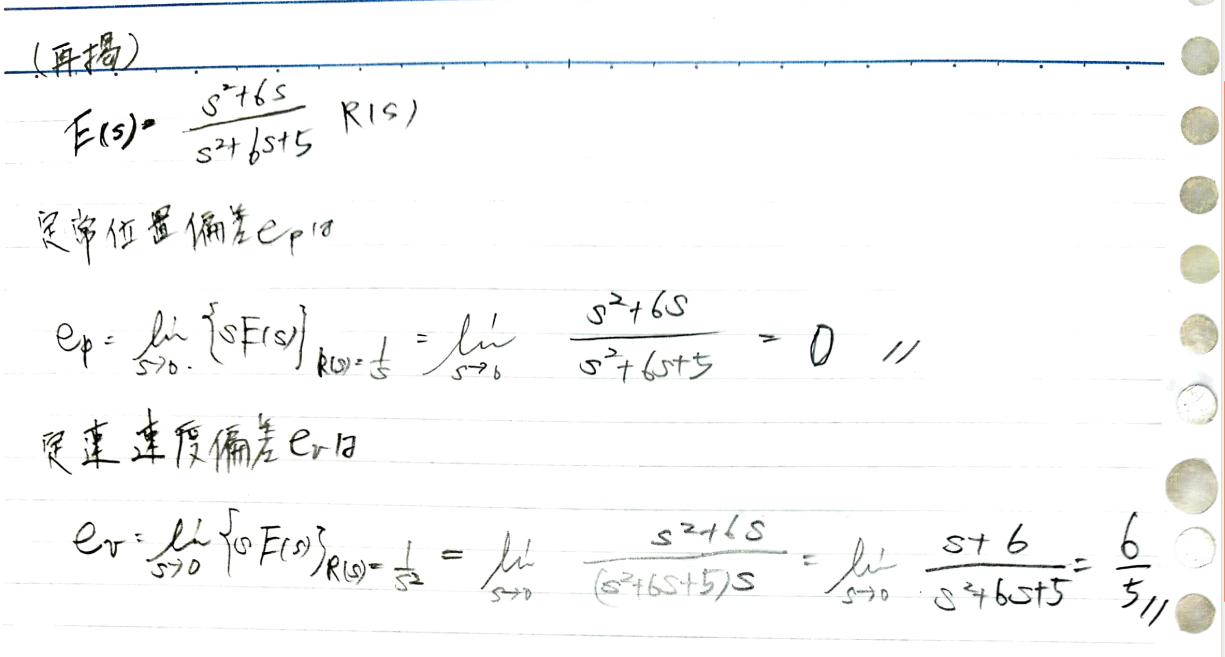 (再掲)
E(s)= \frac{s²+6s}{s²+6s+5} R(s)
定常位置偏差e_pは
e_p = lim_{s→0} {sE(s)}_{R(s)=\frac{1}{s}} = lim_{s→0} \frac{s²+6s}{s²+6s+5} = 0 //
定速速度偏差e_vは
e_v = lim_{s→0} {sE(s)}_{R(s)=\frac{1}{s²}} = lim_{s→0} \frac{s²+6s}{(s²+6s+5)s} = lim_{s→0} \frac{s+6}{s²+6s+5} = \frac{6}{5} //